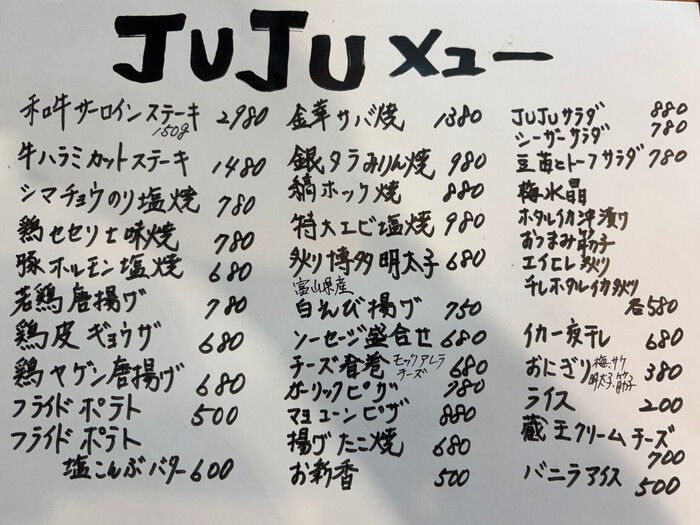 JUJU メュー
和牛サーロインステーキ 2980
150g
牛ハラミカットステーキ 1480
シマチョウのり塩焼 780
鶏セセリ七味焼 780
豚ホルモン塩焼 680
若鶏唐揚げ 780
鶏皮ギョウザ 680
鶏ヤゲン唐揚げ 680
フライドポテト 500
フライドポテト
塩こんぶバター 600
金華サバ焼 1380
銀タラみりん焼 980
縞ホック焼 880
特大エビ塩焼 980
炙り博多明太子 680
富山県産
白えび揚げ 750
ソーセージ盛合せ 680
チーズ春巻 モッツアレラチーズ 680
ガーリックピザ 780
マヨコーンピザ 880
揚げたこ焼 680
お新香 500
JUJUサラダ 880
シーザーサラダ 780
豆苗とトーフサラダ 780
梅水晶
ホタルイカ沖漬け
おつまみ筋子
エイヒレ炙り
干しホタルイカ炙り
各580
イカ一夜干し 680
おにぎり 梅、サケ 明太子、筋子 380
ライス 200
蔵王クリームチーズ
700
バニラアイス 500